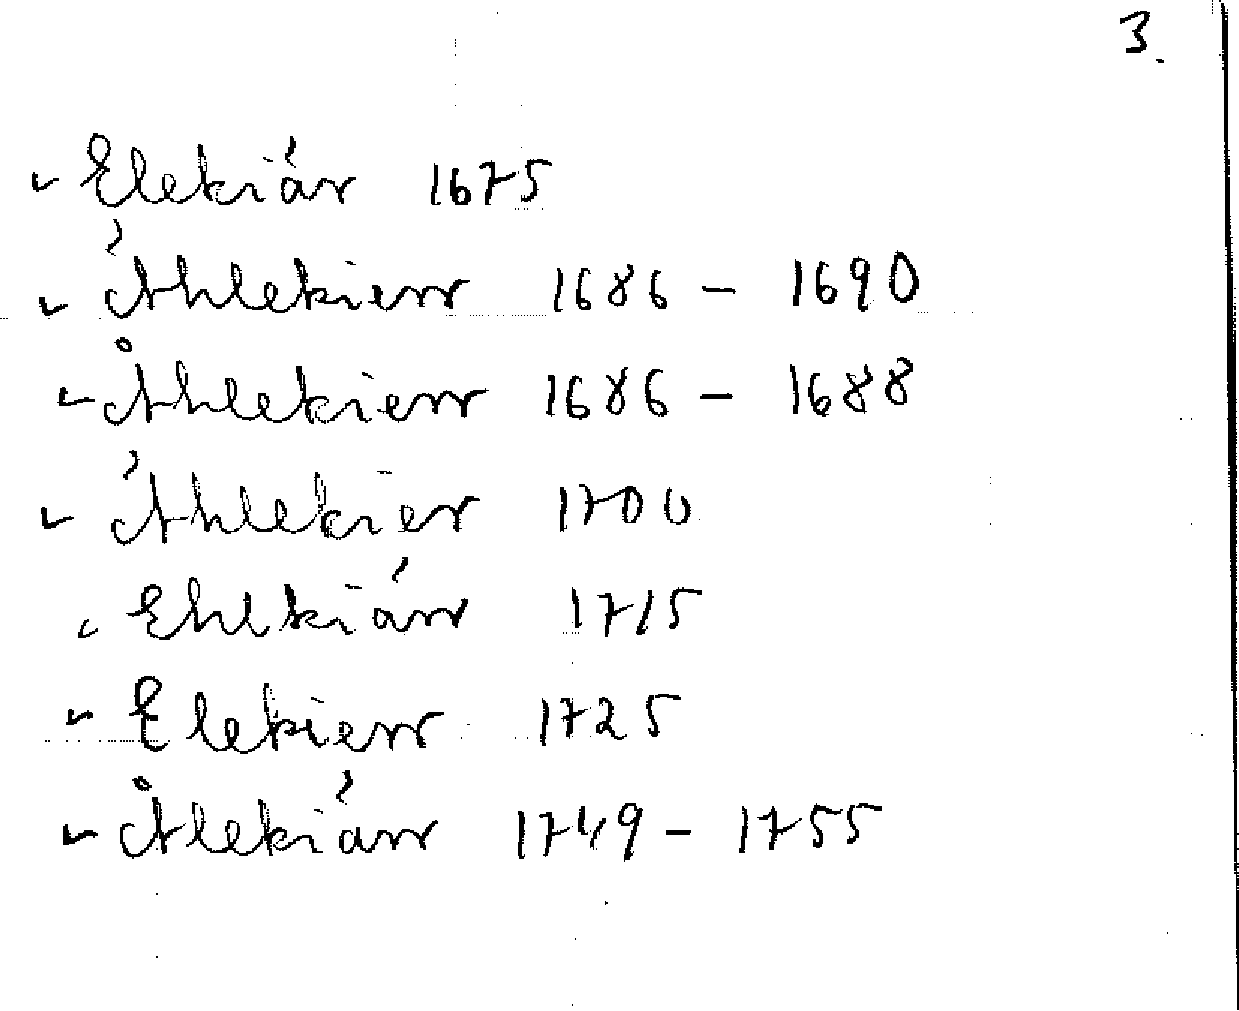 3.
Elekiär 1675
Áthlekierr 1686 - 1690
Åthlekierr 1686 - 1688
Áthlekier 1700
Ehlkiärr 1715
Elekierr 1725
Åtlekiärr 1749 - 1755